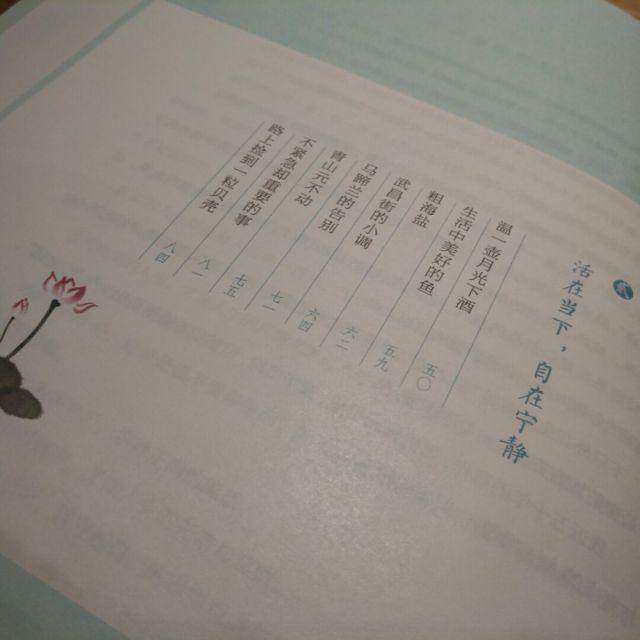 活在当下，自在宁静
温一壶月光下酒 五〇
生活中美好的鱼 五九
粗海盐 六二
武昌街的小调 六四
马蹄兰的告别 七一
青山元不动 七五
不紧急却重要的事 八一
路上捡到一粒贝壳 八四